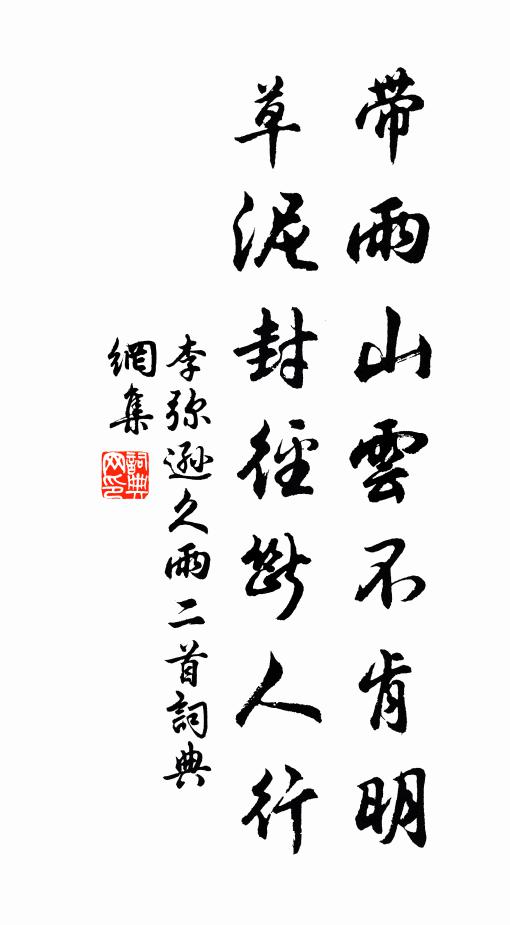 帶雨山雲不肯明
草泥封徑斷人行
李弥遜久雨二首詞典
網集
詞典網印